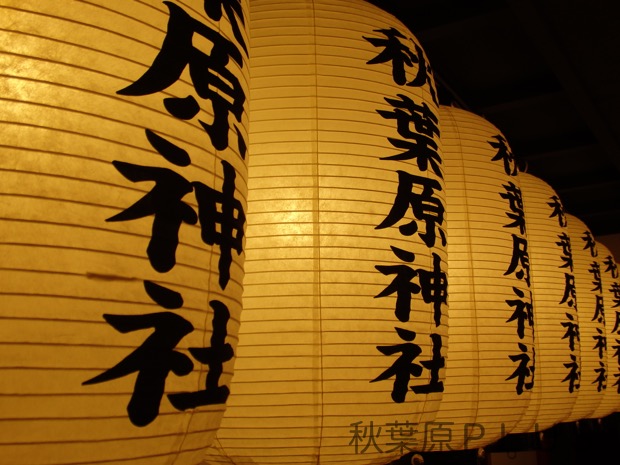 原神社
秋葉原神社
秋葉原神社
秋葉原神社
秋葉原神社
秋葉原
秋葉原Ｐｌ